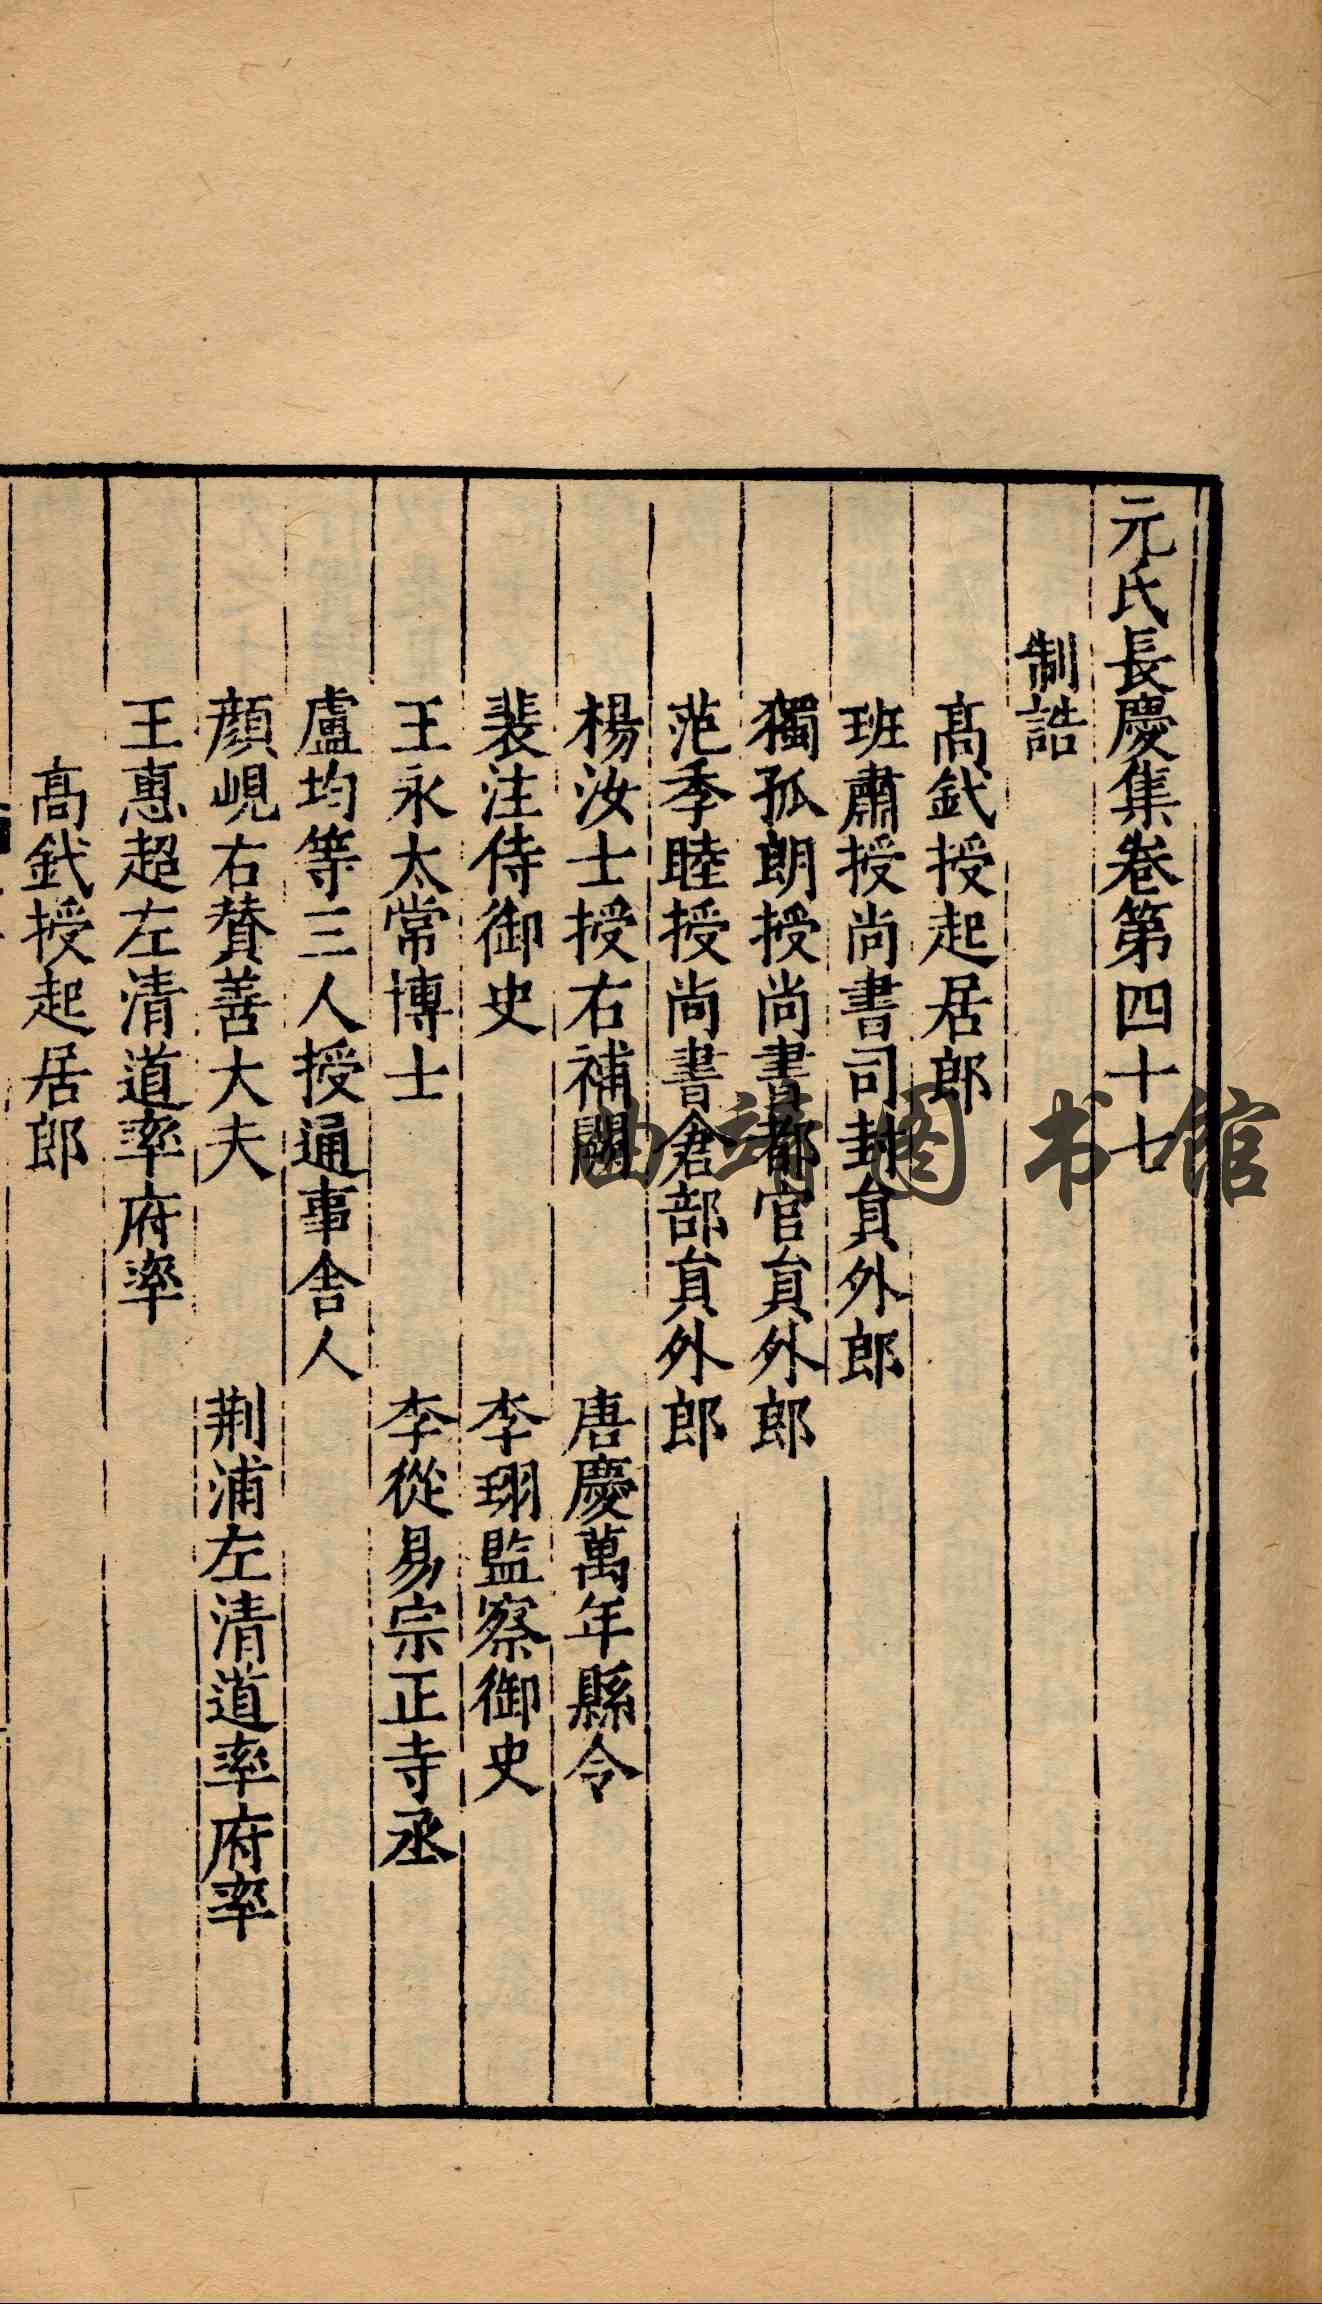 元氏長慶集卷第四十七
制誥
高釴授起居郎
班肅授尚書司封員外郎
獨孤朗授尚書都官員外郎
范季睦授尚書倉部員外郎
楊汝士授右補闕
唐慶萬年縣令
裴注侍御史
李珝監察御史
王永太常博士
李從易宗正寺丞
盧均等三人授通事舍人
顏峴右贊善大夫
荆浦左清道率府率
王惠超左清道率府率
高釴授起居郎
曲靖图书馆